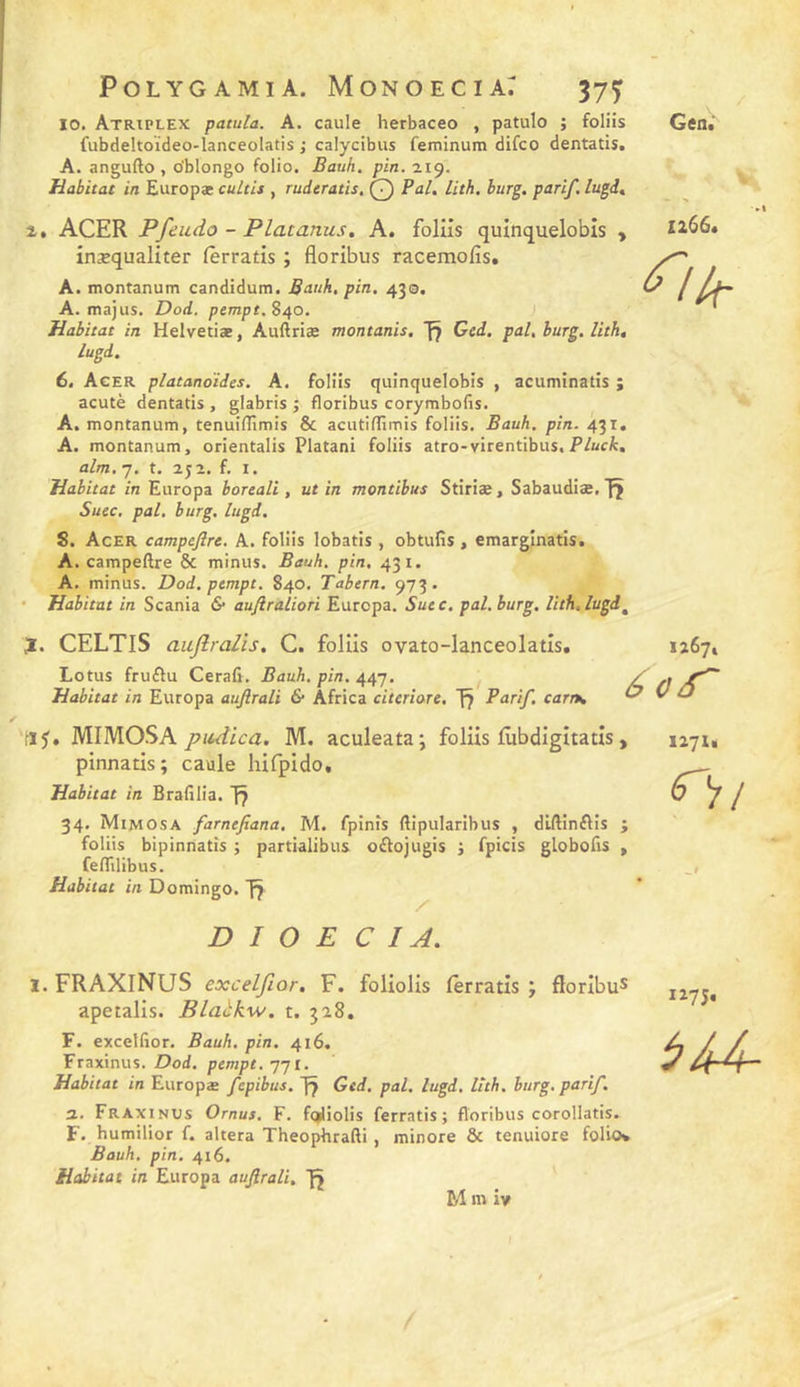 POLYGAMIA. MONOECIA. 375
10. ATRIPLEX patula. A. caule herbaceo , patulo ; foliis Gen.
ſubdeltoïdeo-lanceolatis ; calycibus feminum diſco dentatis.
A. anguſto , oblongo folio. Bauh. pin. 219.
Habitat in Europæ cultis , ruderatis. ☉ Pal. lith. burg. pariſ. lugd.
2. ACER Pſeudo-Platanus. A. foliis quinquelobis , 1266.
inæqualiter ſerratis ; floribus racemoſis.
614
A. montanum candidum. Bauh. pin. 430.
A. majus. Dod. pempt. 840.
Habitat in Helvetiæ, Auſtriæ montanis. ♄ Ged. pal. burg. lith.
lugd.
6. ACER platanoïdes. A. foliis quinquelobis , acuminatis ;
acutè dentatis , glabris ; floribus corymboſis.
A. montanum, tenuiſſimis & acutiſſimis foliis. Bauh. pin. 431.
A. montanum, orientalis Platani foliis atro-virentibus. Pluck.
alm. 7. t. 252. f. 1.
Habitat in Europa boreali , ut in montibus Stiriæ, Sabaudiæ. ♄
Suec. pal. burg. lugd.
8. ACER campeſtre. A. foliis lobatis , obtuſis , emarginatis.
A. campeſtre & minus. Bauh. pin. 431.
A. minus. Dod. pempt. 840. Tabern. 973.
Habitat in Scania & auſtraliori Europa. Suec. pal. burg. lith. lugd.
1. CELTIS auſtralis. C. foliis ovato-lanceolatis. 1267.
Lotus fructu Ceraſi. Bauh. pin. 447.
605
Habitat in Europa auſtrali & Africa citeriore. ♄ Pariſ. carn.
15. MIMOSA pudica. M. aculeata; foliis ſubdigitatis, 1271.
pinnatis; caule hiſpido.
Habitat in Braſilia. ♄
671
34. MIMOSA farneſiana. M. ſpinis ſtipularibus , diſtinctis ;
foliis bipinnatis ; partialibus octojugis ; ſpicis globoſis ,
ſeſſilibus.
Habitat in Domingo. ♄
DIOECIA.
1. FRAXINUS excelſior. F. foliolis ſerratis ; floribus 1275.
apetalis. Blackw. t. 328.
F. excelſior. Bauh. pin. 416.
544
Fraxinus. Dod. pempt. 771.
Habitat in Europæ ſepibus. ♄ Ged. pal. lugd. lith. burg. pariſ.
2. FRAXINUS Ornus. F. foliolis ferratis; floribus corollatis.
F. humilior ſ. altera Theophraſti , minore & tenuiore folio.
Bauh. pin. 416.
Habitat in Europa auſtrali. ♄
M m iv